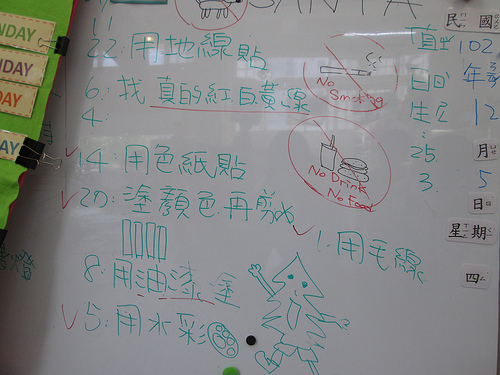 NDAY
DAY
DAY
AY
SANTA
11
22:用地線貼
6:找真的紅白黃線
4:
14:用色紙貼
20:塗顏色再剪
8:用油漆塗
5:用水彩
1:用毛線
No
Smoking
No Drink
No Food
值日生:
25.
3.
民國
102
年
12
月
5
日
星期
四